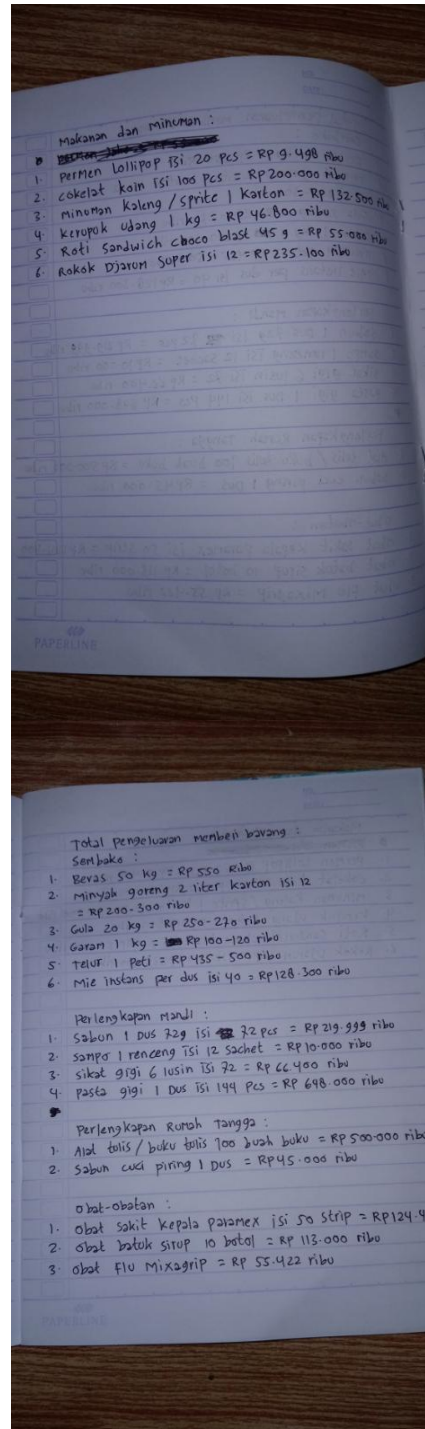 Makanan dan Minuman :
1. Permen Lollipop isi 20 pcs = Rp 9.498 ribu
2. cokelat koin isi 100 pcs = Rp 200.000 ribu
3. Minuman Kaleng / Sprite 1 Karton = Rp 132.500 ribu
4. Keropok udang 1 kg = Rp 46.800 ribu
5. Roti Sandwich choco blast 45 g = Rp 55.000 ribu
6. Rokok Djarum Super isi 12 = Rp 235.100 ribu
PAPERLINE
Total Pengeluaran membeli barang :
Sembako :
1. Beras 50 kg = Rp 550 Ribu
2. Minyak goreng 2 liter karton isi 12
= Rp 200-300 ribu
3. Gula 20 kg = Rp 250-270 ribu
4. Garam 1 kg = Rp 100-120 ribu
5. Telur 1 Peti = Rp 435 - 500 ribu
6. Mie instans per dus isi 40 = Rp 128.300 ribu
Perlengkapan Mandi :
1. Sabun 1 Dus 72g isi 72 pcs = Rp 219.999 ribu
2. Sampo 1 renceng isi 12 sachet = Rp 10.000 ribu
3. Sikat gigi 6 lusin isi 72 = Rp 66.400 ribu
4. Pasta gigi 1 Dus isi 144 Pcs = Rp 698.000 ribu
Perlengkapan Rumah Tangga :
1. Alat tulis / buku tulis 100 buah buku = Rp 500.000 ribu
2. Sabun cuci piring 1 Dus = Rp 45.000 ribu
Obat-obatan :
1. Obat sakit kepala paramex isi 50 strip = Rp 124.4
2. Obat batuk sirup 10 botol = Rp 113.000 ribu
3. Obat Flu Mixagrip = Rp 55.422 ribu
PAPERLINE